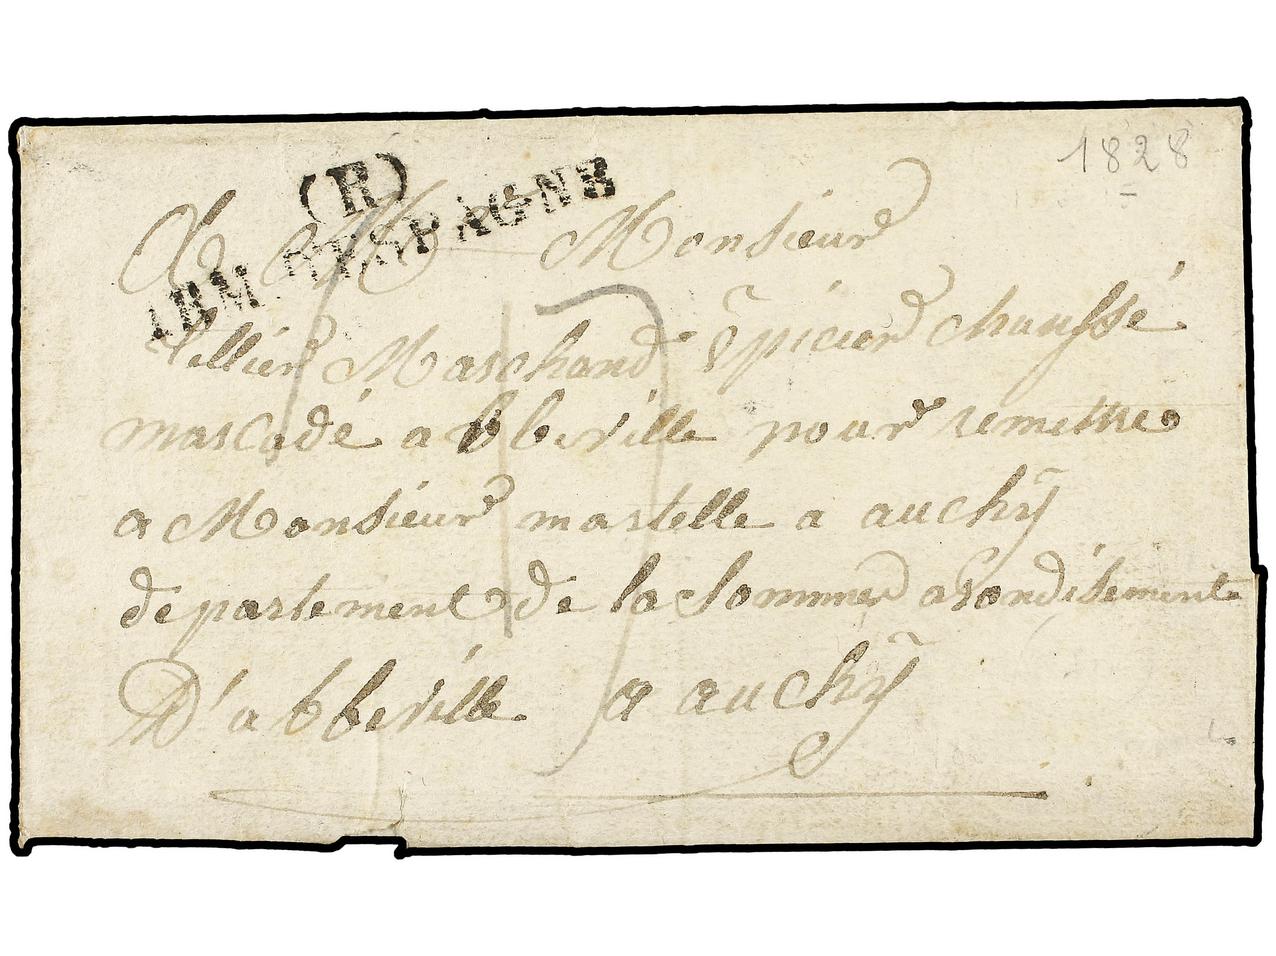 1828
(R)
ARM D'ESPAGNE
A M Monsieur
tellier Marchand épicier chaussé
marcadé a bbeville pour remettre
a Monsieur martelle a auchÿ
departement de la Somme arondisement
D'abbeville a auchÿ